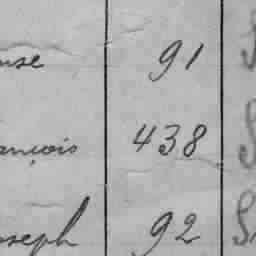 use 91 S
ançois 438 S
oseph 92 S